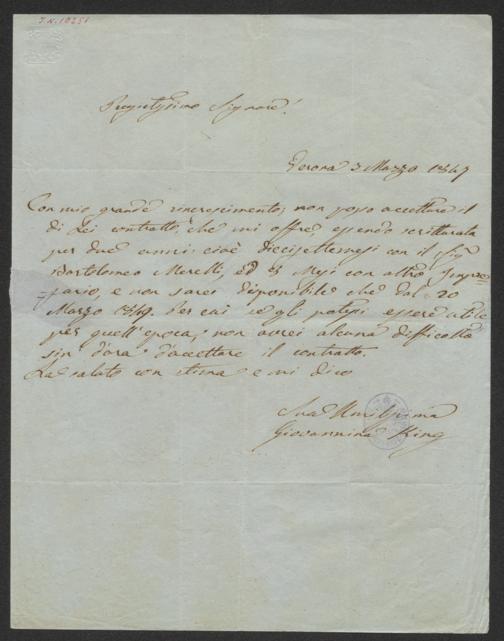 I.N. 18251
Pregiatissimo Signore!
Verona 3 Marzo 1847
Con mio grande rincrescimento, non posso accettare il
di Lei contratto, che mi offre, essendo scritturata
per due anni: cioè diecisette mesi con il Sig
Bartolomeo Merelli, ed 8 Mesi con altro Impre=
=sario, e non sarei disponibile che dal 20
Marzo 1849. Per cui se gli potessi essere utile
per quell'epoca, non avrei alcuna difficoltà
sin d'ora d'accettare il contratto.
La saluto con stima e mi dico
Sua Umilissima
Giovannina King